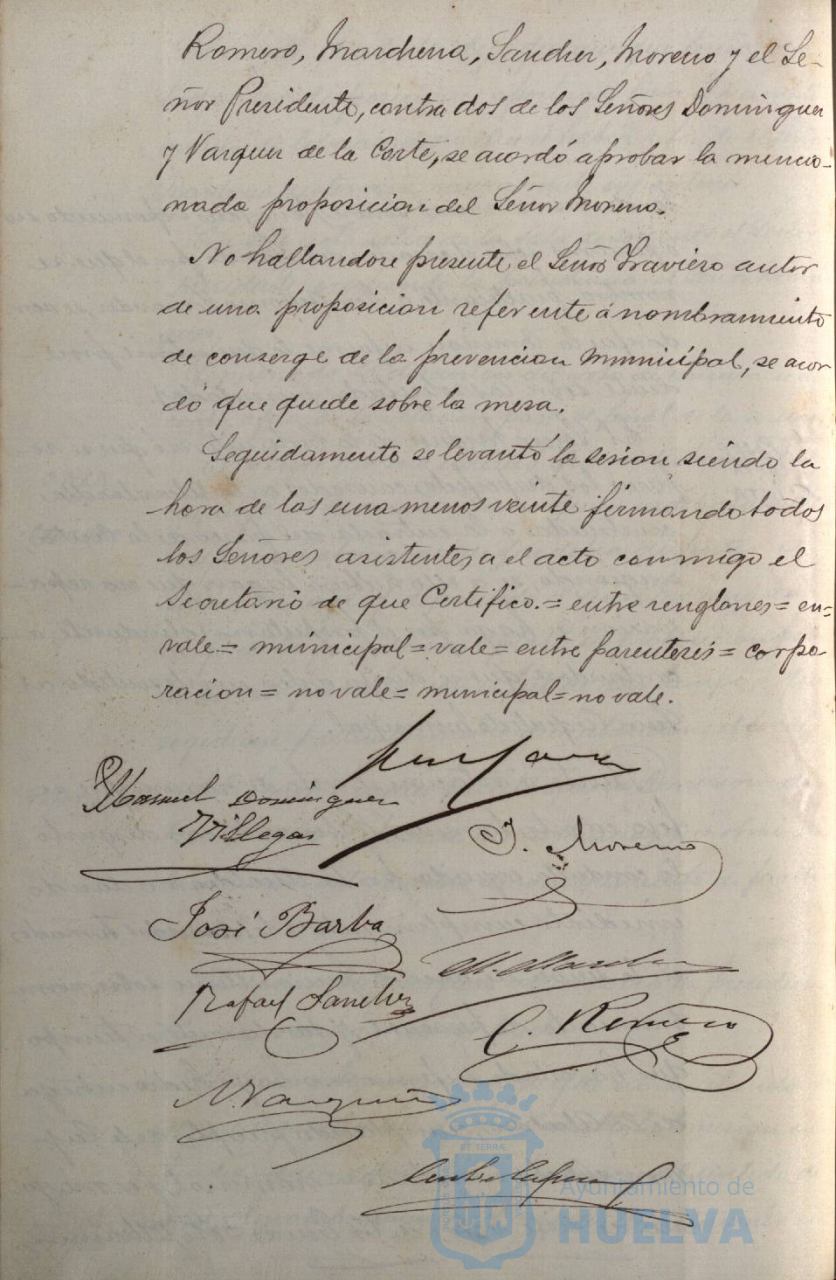 Romero, Marchena, Sanchez, Moreno y el Se-
ñor Presidente, contra dos de los Señores Dominguez
y Vazquez de la Corte, se acordó aprobar la mencio-
nada proposicion del Señor Moreno.
No hallandose presente el Señor Travieso autor
de una proposicion referente á nombramiento
de conserge de la prevencion municipal, se acor
dó que quede sobre la mesa.
Seguidamente se levantó la sesion siendo la
hora de las una menos veinte firmando todos
los Señores asistentes a el acto conmigo el
Secretario de que Certifico.= entre renglones= en=
vale= municipal= vale= entre parentesis= corpo-
racion= no vale= municipal= no vale.
Manuel Dominguez
Villegas
J. Moreno
José Barba
Rafael Sanchez
C. Romero
Ayuntamiento de
HUELVA